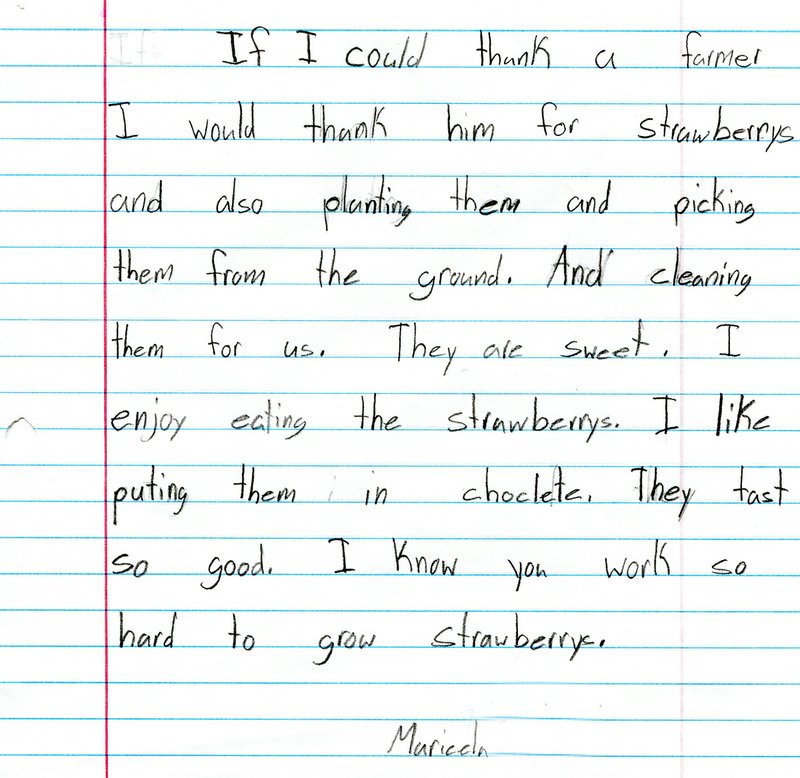 If I could thank a farmer
I would thank him for strawberrys
and also planting them and picking
them from the ground. And cleaning
them for us. They are sweet. I
enjoy eating the strawberrys. I like
puting them in choclete. They tast
so good. I know you work so
hard to grow strawberrys.
Maricela